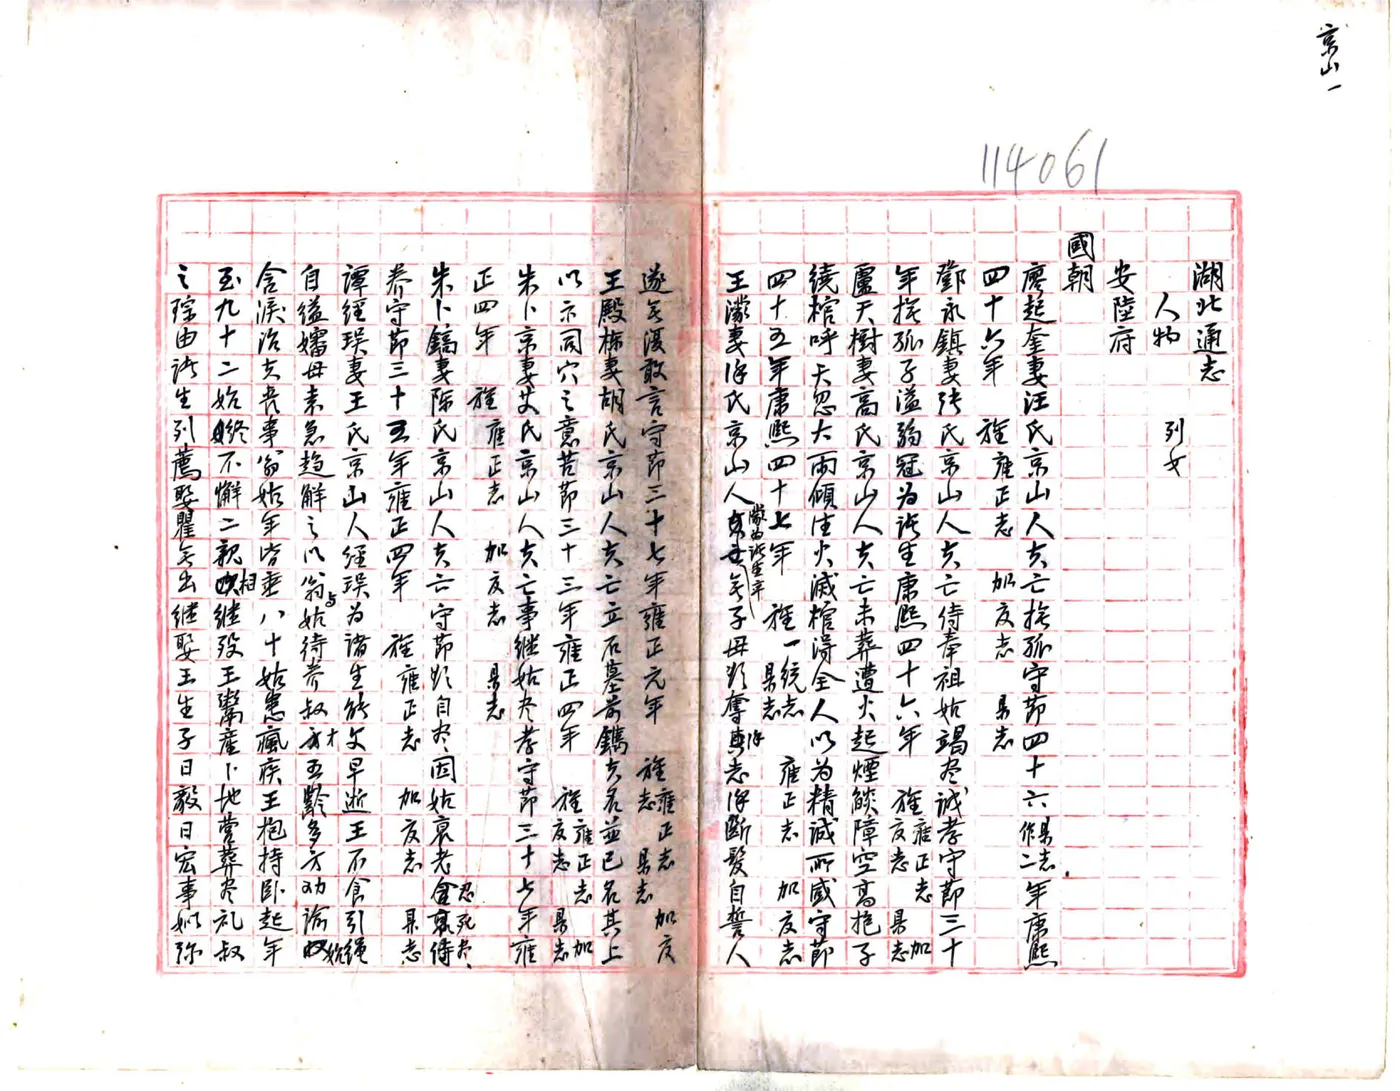 京山一
114061
湖北通志
人物 列女
安陸府
國朝
廖起奎妻汪氏京山人夫亡撫孤守節四十六縣志作二年康熙
四十六年 旌雍正志 加府志 縣志
鄧永鎮妻張氏京山人夫亡侍奉祖姑竭盡誠孝守節三十
年撫孤子溢弱冠為諸生康熙四十六年 旌雍正志 加府志 縣志
盧天樹妻高氏京山人夫亡未葬遭火起煙燄障空高抱子
繞棺呼天忽大雨傾注火滅棺得全人以為精誠所感守節
四十五年康熙四十七年 旌一統志 雍正志 加府志 縣志
王濛妻徐氏京山人濛為諸生卒無子母欲奪其志徐斷髮自誓人
遂無復敢言守節三十七年雍正元年 旌雍正志 加府志 縣志
王殿栋妻胡氏京山人夫亡立石墓前鐫夫名並已名其上
以示同穴之意苦節三十三年雍正四年 旌雍正志 加府志 縣志
朱卜京妻艾氏京山人夫亡事繼姑盡孝守節三十七年雍
正四年 旌雍正志 加府志 縣志
朱卜鎬妻陈氏京山人夫亡守節欲自盡因姑衰老忍死盡侍
养守節三十五年雍正四年 旌雍正志 加府志 縣志
譚經瑛妻王氏京山人經瑛為諸生能文早逝王不食引繩
自縊孀母素急趨解之以翁与姑待养叔才五齡多方劝諭始
含淚治夫喪事翁姑年皆垂八十姑患瘋疾王抱持卧起年
至九十二始終不懈二親相继歿王鬻產卜地营葬盡礼叔
之琮由諸生列薦娶瞿無出继娶王生子日毅日宏事嫂弥